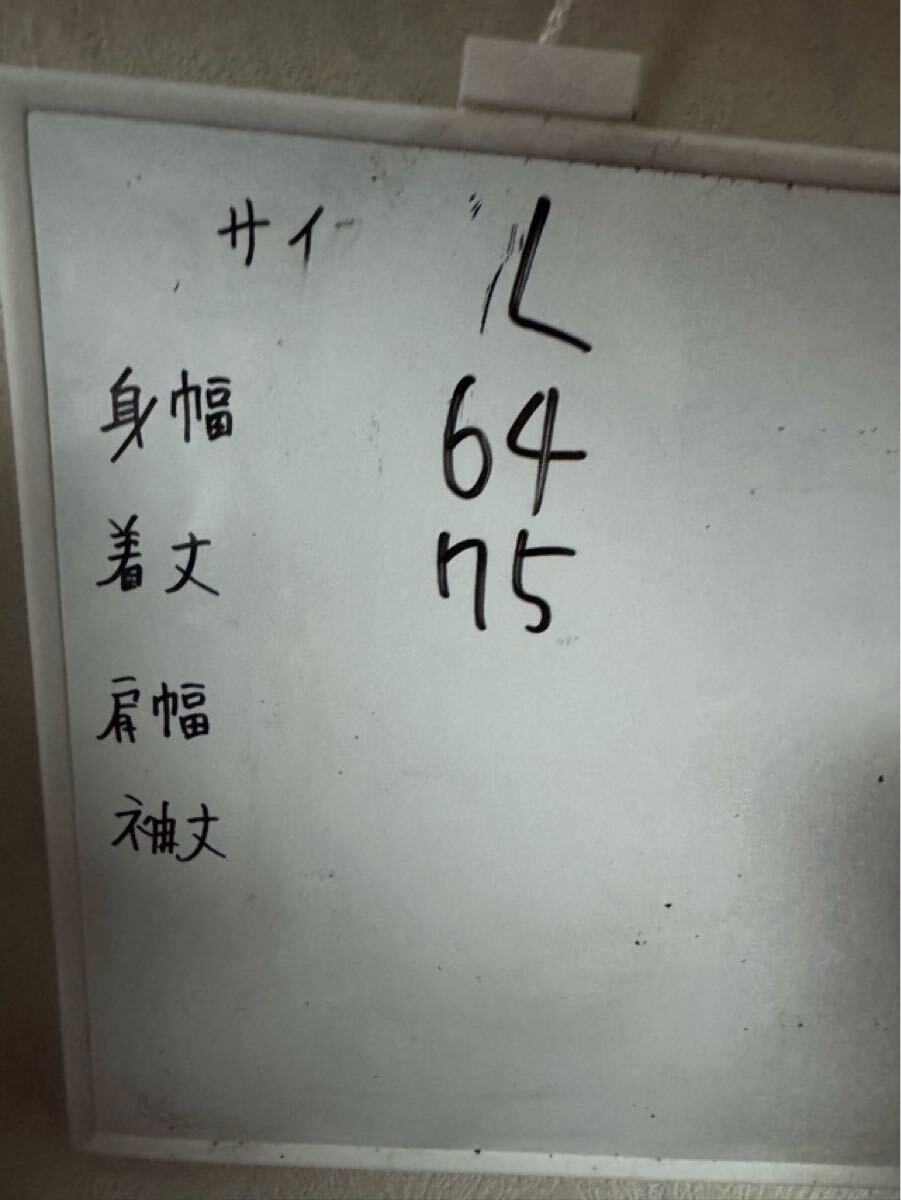 サイ L
身幅 64
着丈 75
肩幅
袖丈